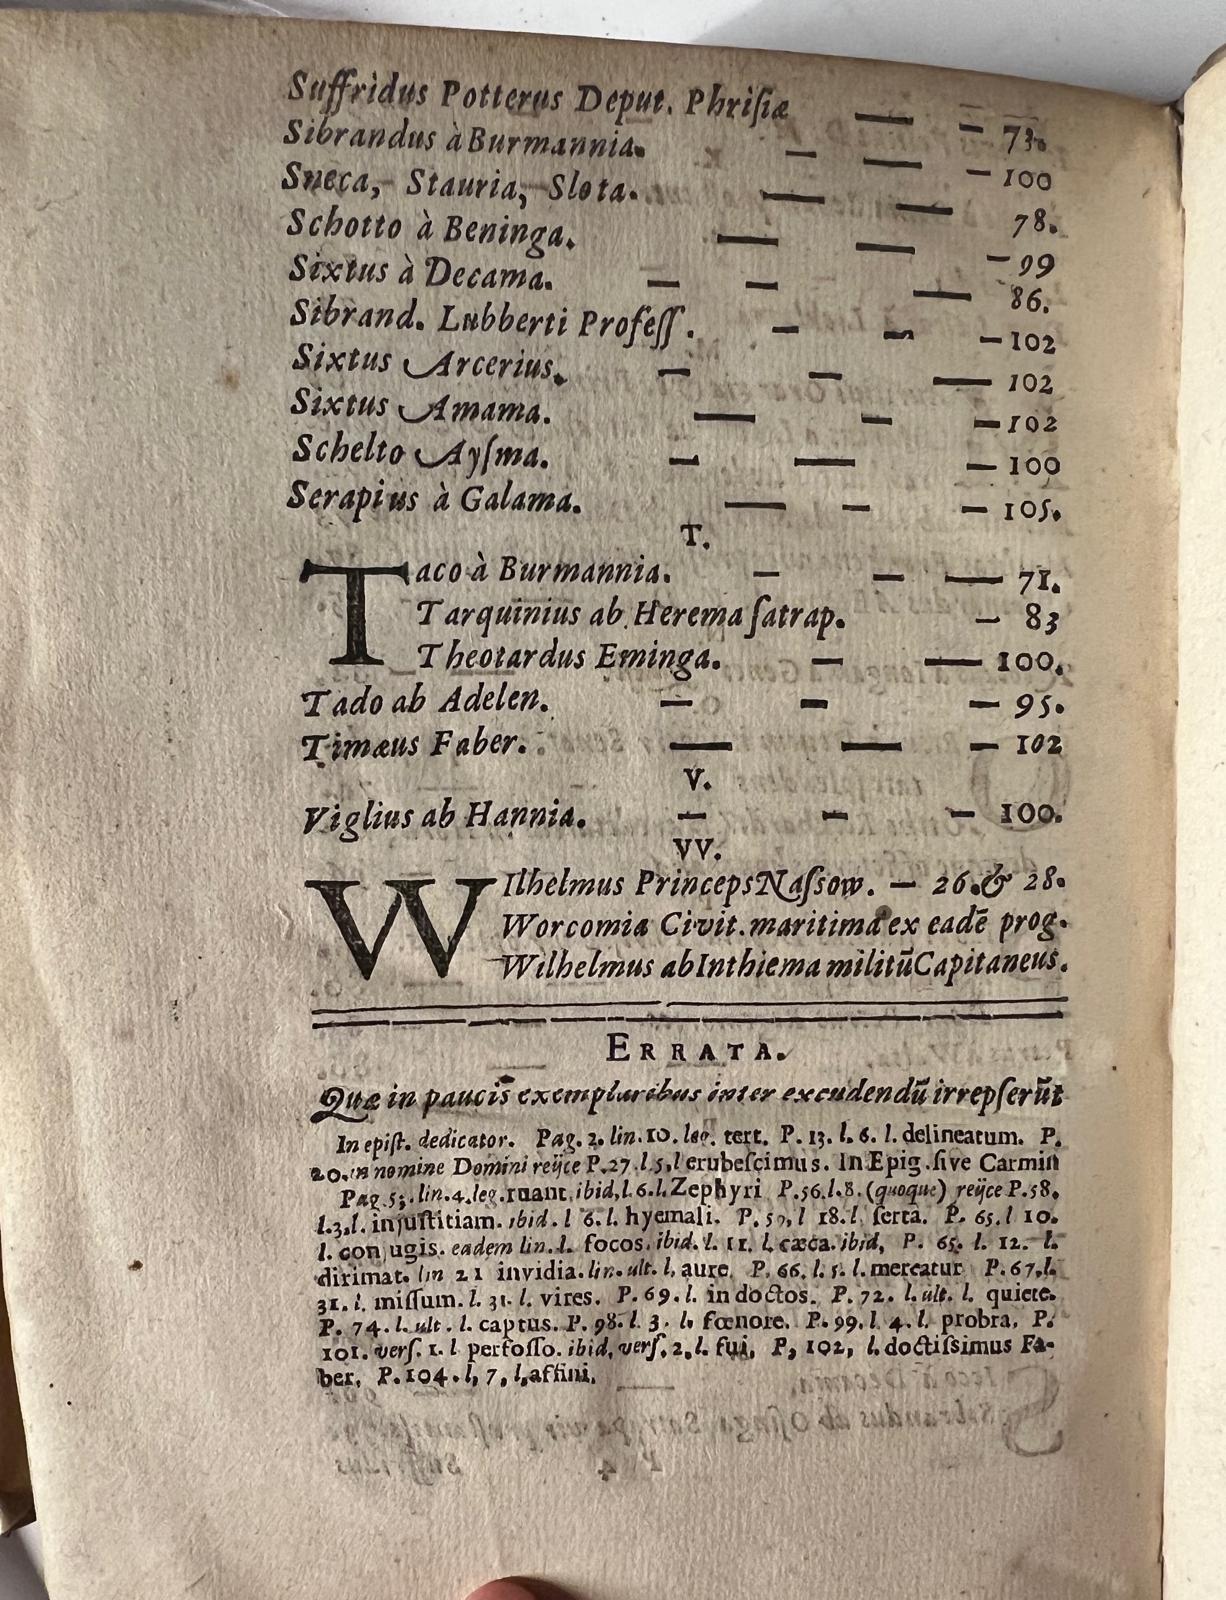 Suffridus Potterus Deput. Phriſiæ — — 73.
Sibrandus à Burmannia. — — — 100
Sneca, Stauria, Slota. — — 78.
Schotto à Beninga. — — — 99
Sixtus à Decama. — — — 86.
Sibrand. Lubberti Profeſſ. — — — 102
Sixtus Arcerius. — — — 102
Sixtus Amama. — — — 102
Schelto Ayſma. — — — 100
Serapius à Galama. — — — 105.
T.
Taco à Burmannia. — — — 71.
Tarquinius ab Herema ſatrap. — 83
Theotardus Eminga. — — 100.
Tado ab Adelen. — — — 95.
Timæus Faber. — — — 102
V.
Viglius ab Hannia. — — — 100.
VV.
WIlhelmus Princeps Naſsow. — 26. & 28.
Worcomia Civit. maritima ex eadē prog.
Wilhelmus ab Inthiema militū Capitaneus.
ERRATA.
Quæ in paucis exemplaribus inter excudendū irrepſerūt
In epiſt. dedicator. Pag. 2. lin. 10. leg. tert. P. 13. l. 6. l. delineatum. P.
20. in nomine Domini reijce P. 27. l. 5. l erubeſcimus. In Epig. ſive Carmin
Pag. lin. 4. leg. ruant, ibid, l. 6. l. Zephyri P. 56. l. 8. (quoque) reijce P. 58.
l. 3. l. injuſtitiam. ibid. l 6. l. hyemali. P. l 18. l. ſerta. P. 65. l 10.
l. conjugis. eadem lin. l. focos. ibid. l. 11. l. cæca. ibid, P. 65. l. 12. l.
dirimat. lin 21 invidia. lin. ult. l, aure. P. 66. l. 5. l. mercatur P. 67. l.
31. l. miſſum. l. 31. l. vires. P. 69. l. indoctos. P. 72. l. ult. l. quiete.
P. 74. l. ult. l. captus. P. 98. l. 3. l. fœnore. P. 99. l. 4. l. probra. P.
101. verſ. 1. l perfoſſo. ibid, verſ. 2. l. fui. P, 102, l. doctiſsimus Fa-
ber. P. 104. l, 7, l, affini.